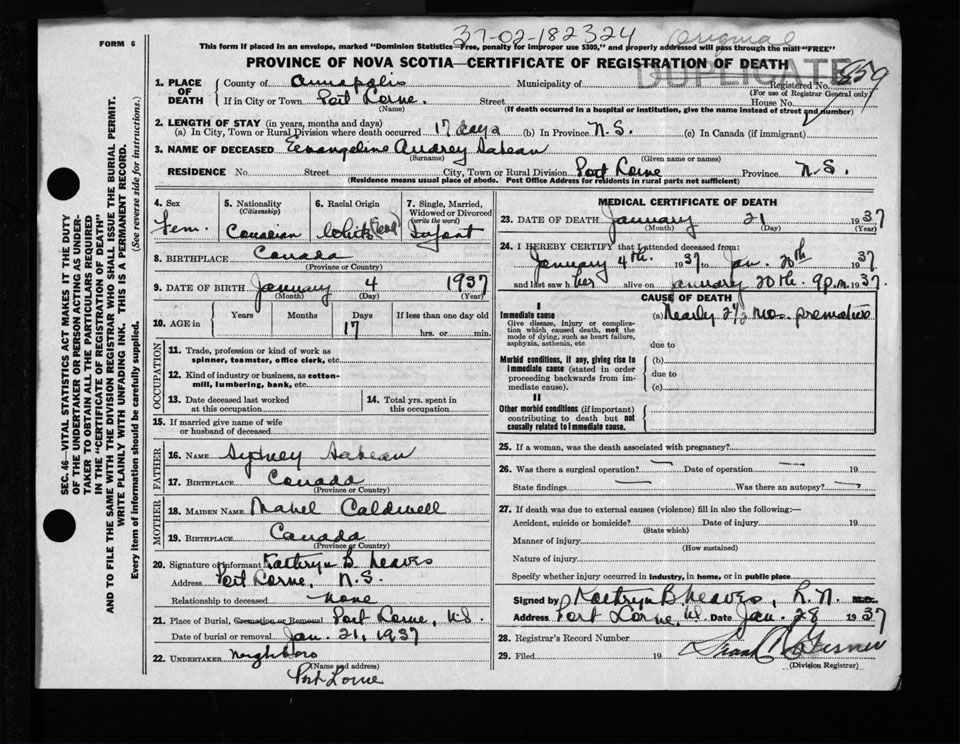 37-02-182324
Original
FORM 6
This form if placed in an envelope, marked "Dominion Statistics—Free, penalty for improper use $300," and properly addressed will pass through the mail "FREE"
PROVINCE OF NOVA SCOTIA—CERTIFICATE OF REGISTRATION OF DEATH
DUPLICATE
1. PLACE OF DEATH
County of Annapolis Municipality of Registered No. 859
(For use of Registrar General only)
If in City or Town Port Lorne. Street House No.
(Name) (If death occurred in a hospital or institution, give the name instead of street and number)
2. LENGTH OF STAY (in years, months and days)
(a) In City, Town or Rural Division where death occurred 17 days (b) In Province N.S. (c) In Canada (if immigrant)
3. NAME OF DECEASED Evangeline Audrey Sabean
(Surname) (Given name or names)
RESIDENCE No Street City, Town or Rural Division Port Lorne Province N.S.
(Residence means usual place of abode. Post Office Address for residents in rural parts not sufficient)
4. Sex
Fem.
5. Nationality
(Citizenship)
Canadian
6. Racial Origin
White
7. Single, Married, Widowed or Divorced
(write the word)
Infant
8. BIRTHPLACE Canada
(Province or Country)
9. DATE OF BIRTH January 4 1937
(Month) (Day) (Year)
10. AGE in
Years Months Days If less than one day old
17 hrs. or min.
OCCUPATION
11. Trade, profession or kind of work as
spinner, teamster, office clerk, etc.
12. Kind of industry or business, as cotton-
mill, lumbering, bank, etc.
13. Date deceased last worked
at this occupation
14. Total yrs. spent in
this occupation
15. If married give name of wife
or husband of deceased
FATHER
16. NAME Sydney Sabean
17. BIRTHPLACE Canada
(Province or Country)
MOTHER
18. MAIDEN NAME Mabel Caldwell
19. BIRTHPLACE Canada
(Province or Country)
20. Signature of informant Kathryn B. Neaves
Address Port Lorne, N.S.
Relationship to deceased none
21. Place of Burial, Cremation or Removal Port Lorne, N.S.
Date of burial or removal Jan. 21, 1937
22. UNDERTAKER neighbors
(Name and address)
Port Lorne
MEDICAL CERTIFICATE OF DEATH
23. DATE OF DEATH January 21 1937
(Month) (Day) (Year)
24. I HEREBY CERTIFY that I attended deceased from:
January 4th. 1937 to Jan. 20th 1937
and last saw her alive on January 20th. 9 p.m. 1937.
CAUSE OF DEATH
I
Immediate cause
Give disease, injury or complica-
tion which caused death, not the
mode of dying, such as heart failure,
asphyxia, asthenia, etc
(a) Nearly 2 1/2 mos. premature
due to
Morbid conditions, if any, giving rise to
immediate cause (stated in order
proceeding backwards from im-
mediate cause).
(b)
due to
(c)
II
Other morbid conditions (if important)
contributing to death but not
causally related to immediate cause.
25. If a woman, was the death associated with pregnancy?
26. Was there a surgical operation? — Date of operation — 19
State findings — Was there an autopsy? —
27. If death was due to external causes (violence) fill in also the following:—
Accident, suicide or homicide? Date of injury 19
(State which)
Manner of injury
(How sustained)
Nature of injury
Specify whether injury occurred in industry, in home, or in public place
Signed by Kathryn B. Neaves, R.N. M.D.
Address Port Lorne, N.S. Date Jan. 28 1937
28. Registrar's Record Number
29. Filed 19
(Division Registrar)
SEC. 46—VITAL STATISTICS ACT MAKES IT THE DUTY
OF THE UNDERTAKER OR PERSON ACTING AS UNDER-
TAKER TO OBTAIN ALL THE PARTICULARS REQUIRED
IN THE "CERTIFICATE OF REGISTRATION OF DEATH"
AND TO FILE THE SAME WITH THE DIVISION REGISTRAR WHO SHALL ISSUE THE BURIAL PERMIT.
WRITE PLAINLY WITH UNFADING INK. THIS IS A PERMANENT RECORD.
Every item of information should be carefully supplied. (See reverse side for instructions.)